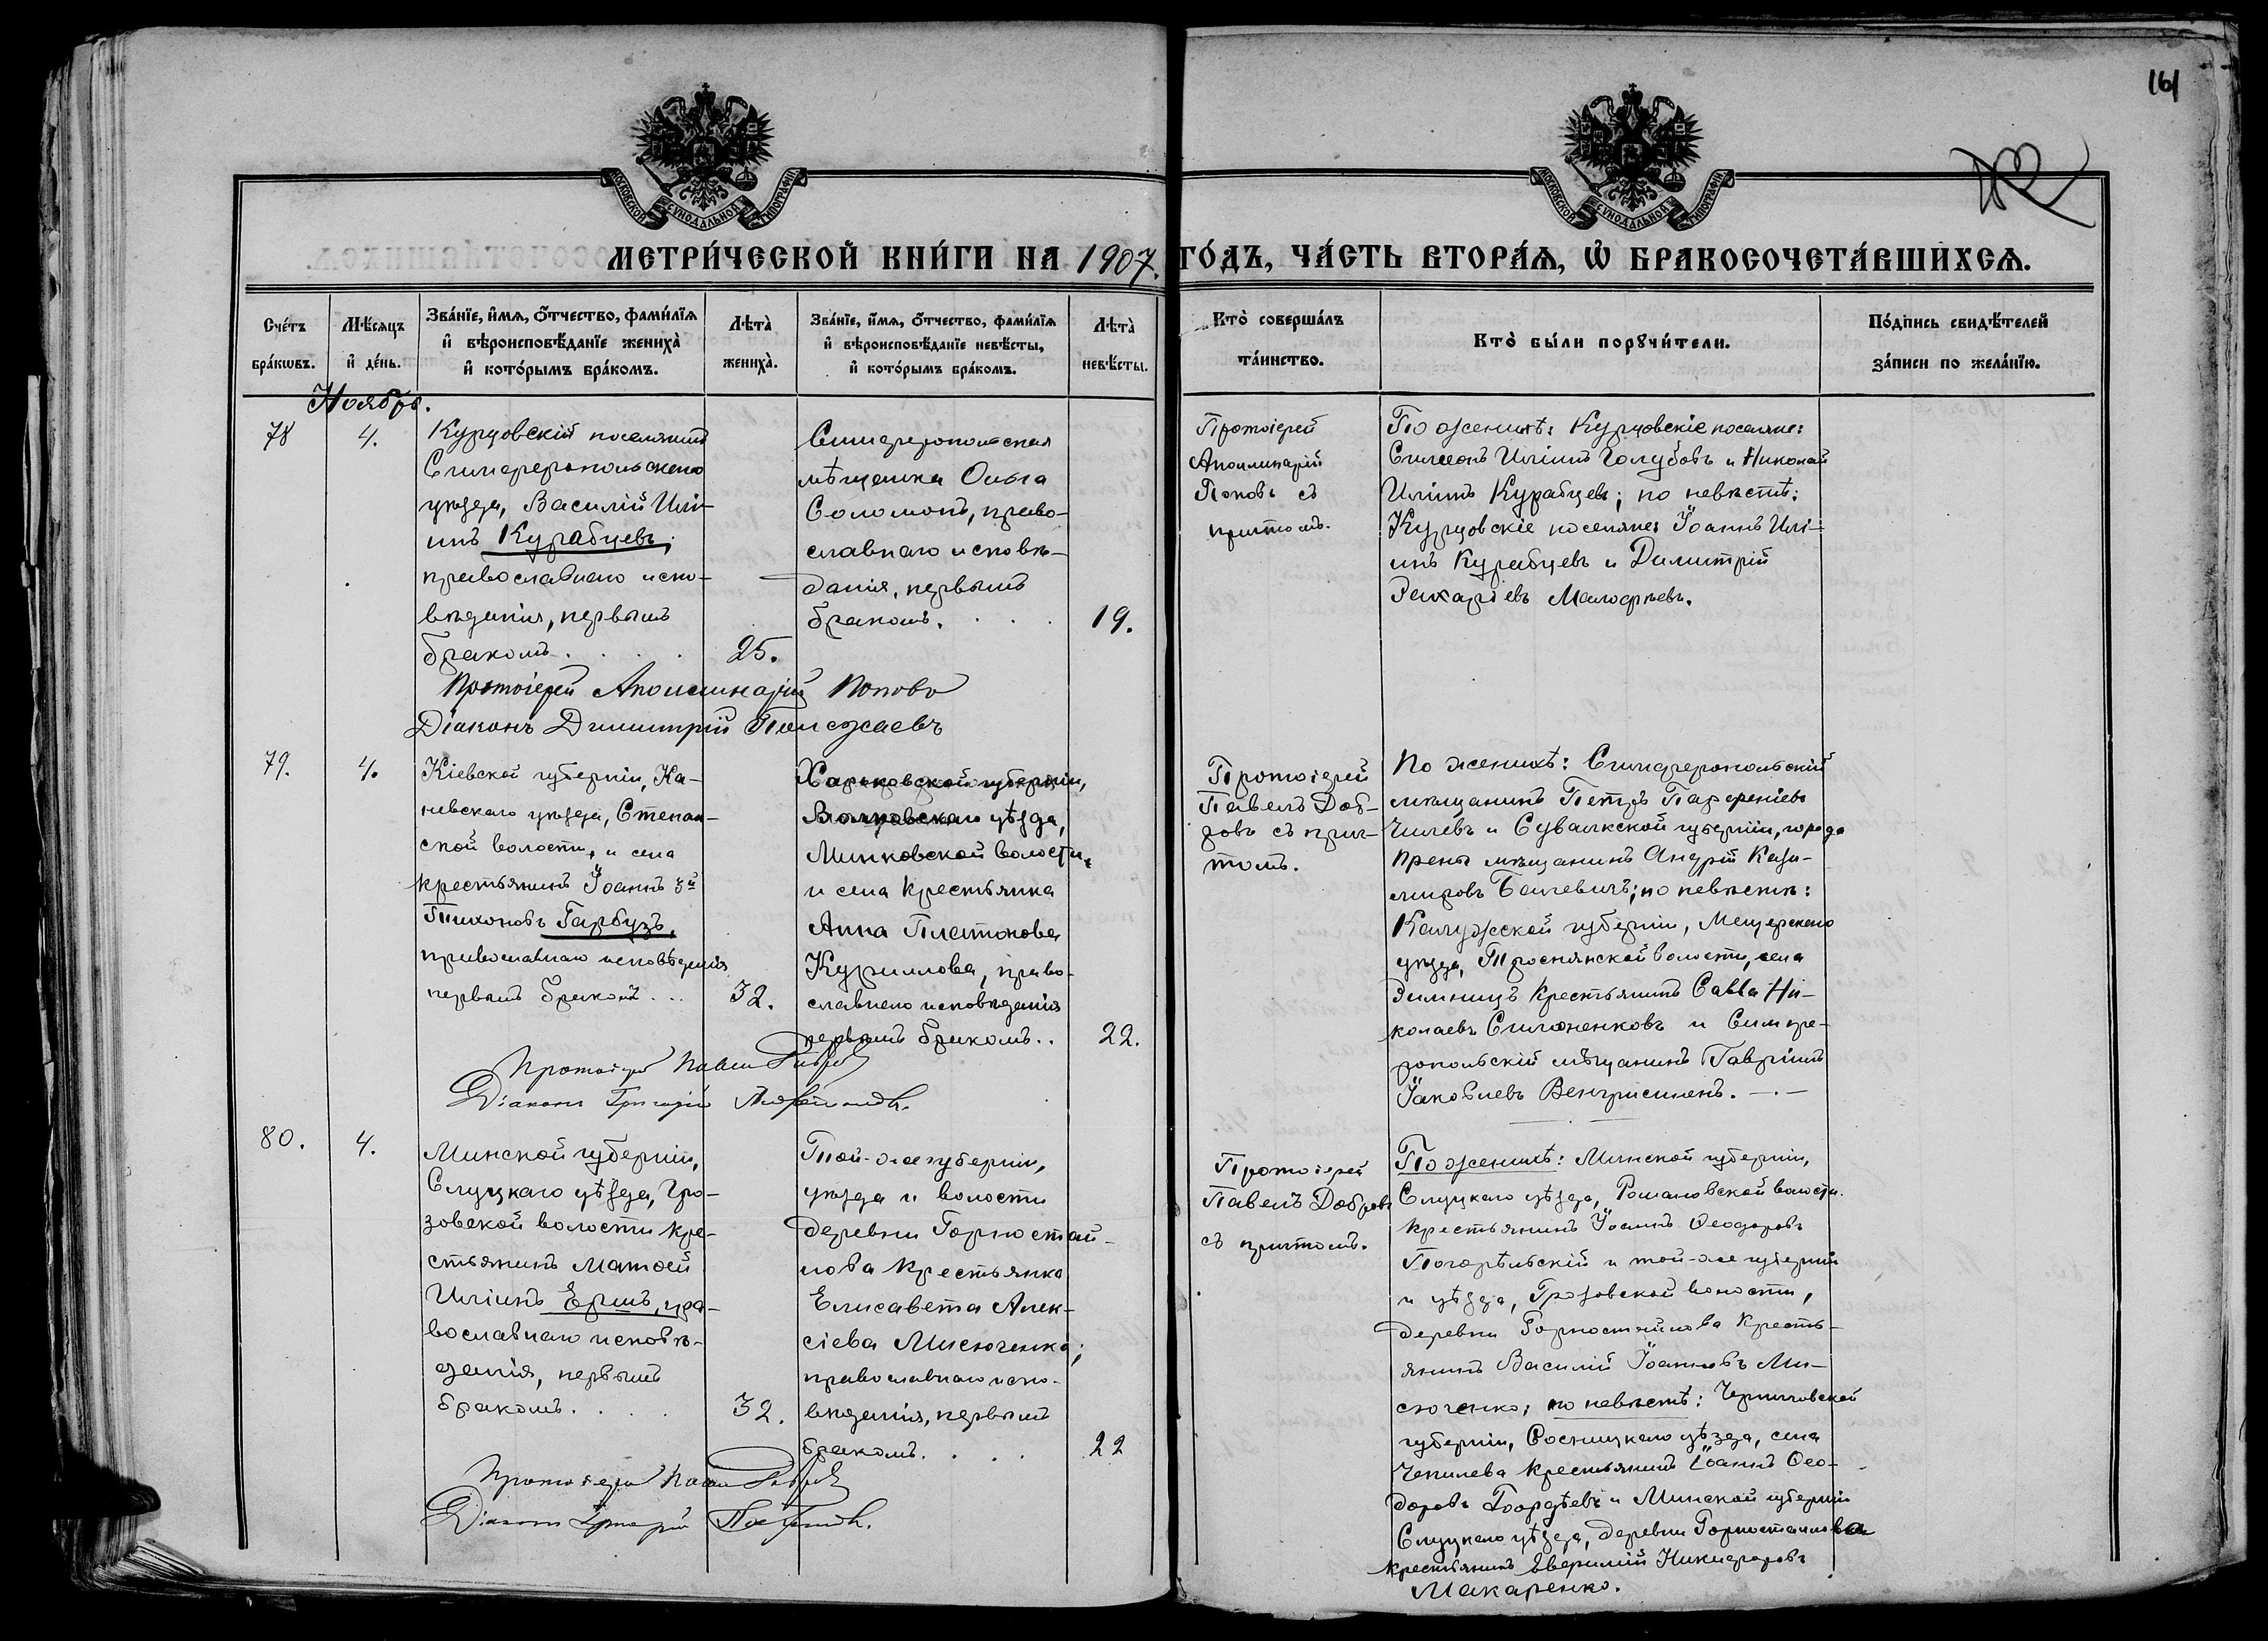 161
МОСКОВСКОЙ СѴНОДАЛЬНОЙ ТИПОГРАФІИ
МОСКОВСКОЙ СѴНОДАЛЬНОЙ ТИПОГРАФІИ
МЕТРИ́ЧЕСКОЙ КНИ́ГИ НА 1907. ГО́ДЪ, ЧА́СТЬ ВТОРА́Ѧ, Ѡ҆ БРАКОСОЧЕТА́ВШИХСѦ.
Сче́тъ
бра́кѡвъ.
Мѣ́сѧцъ
и҆ де́нь.
Зва́нїе, и҆́мѧ, ѻ҆́тчество, фами́лїѧ
и҆ вѣроисповѣ́данїе жениха̀
и҆ кото́рымъ бра́комъ.
Лѣта̀
жениха̀.
Зва́нїе, и҆́мѧ, ѻ҆́тчество, фами́лїѧ
и҆ вѣроисповѣ́данїе невѣ́сты,
и҆ кото́рымъ бра́комъ.
Лѣта̀
невѣ́сты.
Кто̀ соверша́лъ
та́инство.
Кто̀ бы́ли порꙋчи́тели.
По́дпись свидѣ́телей
за́писи по жела́нїю.
Ноябрь.
78
4.
Курцовскій поселянинъ
Симферопольскаго
уѣзда, Василій Илі-
инъ Курабцевъ,
православнаго испо-
вѣданія, первымъ
бракомъ. . . .
25.
Симферопольская
мѣщанка Ольга
Соломонъ, право-
славнаго исповѣ-
данія, первымъ
бракомъ. . . .
19.
Протоіерей
Аполлинарій
Поповъ съ
причтомъ.
По женихѣ: Курцовскіе поселяне:
Симеонъ Иліинъ Голубовъ и Николай
Иліинъ Курабцевъ; по невѣстѣ:
Курцовскіе поселяне: Іоаннъ Илі-
инъ Курабцевъ и Димитрій
Захаріевъ Малофѣевъ.
Протоіерей Аполлинарій Поповъ
Діаконъ Димитрій Полежаевъ
79.
4.
Кіевской губерніи, Ка-
невскаго уѣзда, Степан-
ской волости, и села
крестьянинъ Іоаннъ 3й
Тихоновъ Гарбузъ,
православнаго исповѣданія
первымъ бракомъ. ..
32.
Харьковской губерніи,
Валковскаго уѣзда,
Минковской волости,
и села крестьянка
Анна Платонова
Курилова, право-
славнаго исповѣданія
первымъ бракомъ. .
22.
Протоіерей
Павелъ Доб-
ровъ съ прич-
томъ.
По женихѣ: Симферопольскій
мѣщанинъ Петръ Парфеніевъ
Чилевъ и Сувалкской губерніи, города
Прены мѣщанинъ Андрей Кази-
мировъ Балевичъ; по невѣстѣ:
Калужской губерніи, Мещерскаго
уѣзда, Троснянской волости, села
Зимницъ крестьянинъ Савва Ни-
колаевъ Симоненковъ и Симфе-
ропольскій мѣщанинъ Гавріилъ
Іаковлевъ
Протоіерей Павелъ Добровъ
Діаконъ Григорій
80.
4.
Минской губерніи,
Слуцкаго уѣзда, Гро-
зовской волости кре-
стьянинъ Матѳей
Иліинъ Ершъ, пра-
вославнаго исповѣ-
данія, первымъ
бракомъ. . . .
32.
Той-же губерніи,
уѣзда и волости
деревни Горностай-
лова крестьянка
Елисавета Алек-
сіева Мисюченко;
православнаго испо-
вѣданія, первымъ
бракомъ. . . .
22
Протоіерей
Павелъ Добровъ
съ причтомъ.
По женихѣ: Минской губерніи,
Слуцкаго уѣзда, Романовской волости.
крестьянинъ Іоаннъ Ѳеодоровъ
Погорѣльскій и той-же губерніи
и уѣзда, Грозовской волости,
деревни Горностайлова кресть-
янинъ Василій Іоанновъ Ми-
сюченко; по невѣстѣ: Черниговской
губерніи, Сосницкаго уѣзда, села
Чепилева крестьянинъ Іоаннъ Ѳео-
доровъ Гордѣевъ и Минской губерніи
Слуцкаго уѣзда, деревни Горностаилова
крестьянинъ Евфимій Никифоровъ
Макаренко.
Протоіерей Павелъ Добровъ
Діаконъ Григорій